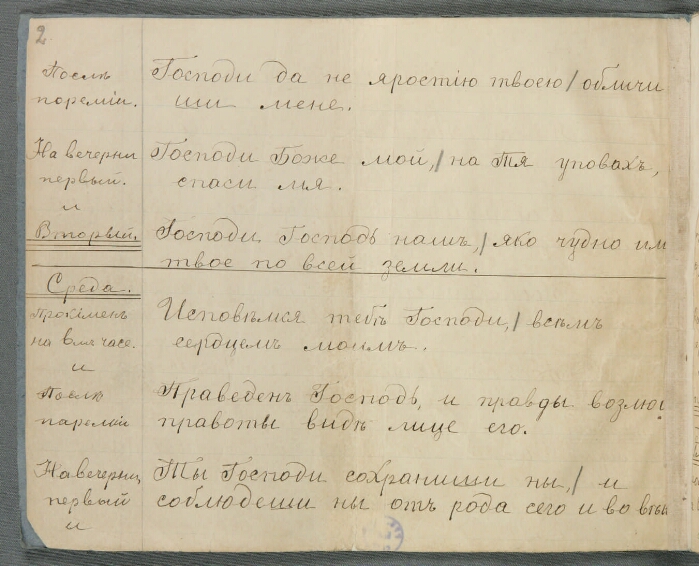 2
Послѣ Господи да не яростію твоею / обличи
пореміи. ши мене.
На вечерни Господи Боже мой, / на тя уповахъ,
первый. спаси мя.
и
Вторый. Господи Господь нашъ, / яко чудно им
твое по всей земли.
Среда.
Прокіменъ Исповѣмся тебѣ Господи, / всѣмъ
часе. сердцемъ моимъ.
и
Послѣ Праведенъ Господь, и правды возлю
пареміи правоты видѣ лице его.
На вечерни, Ты Господи сохраниши ны, / и
первый соблюдеши ны отъ рода сего и во вѣки
и